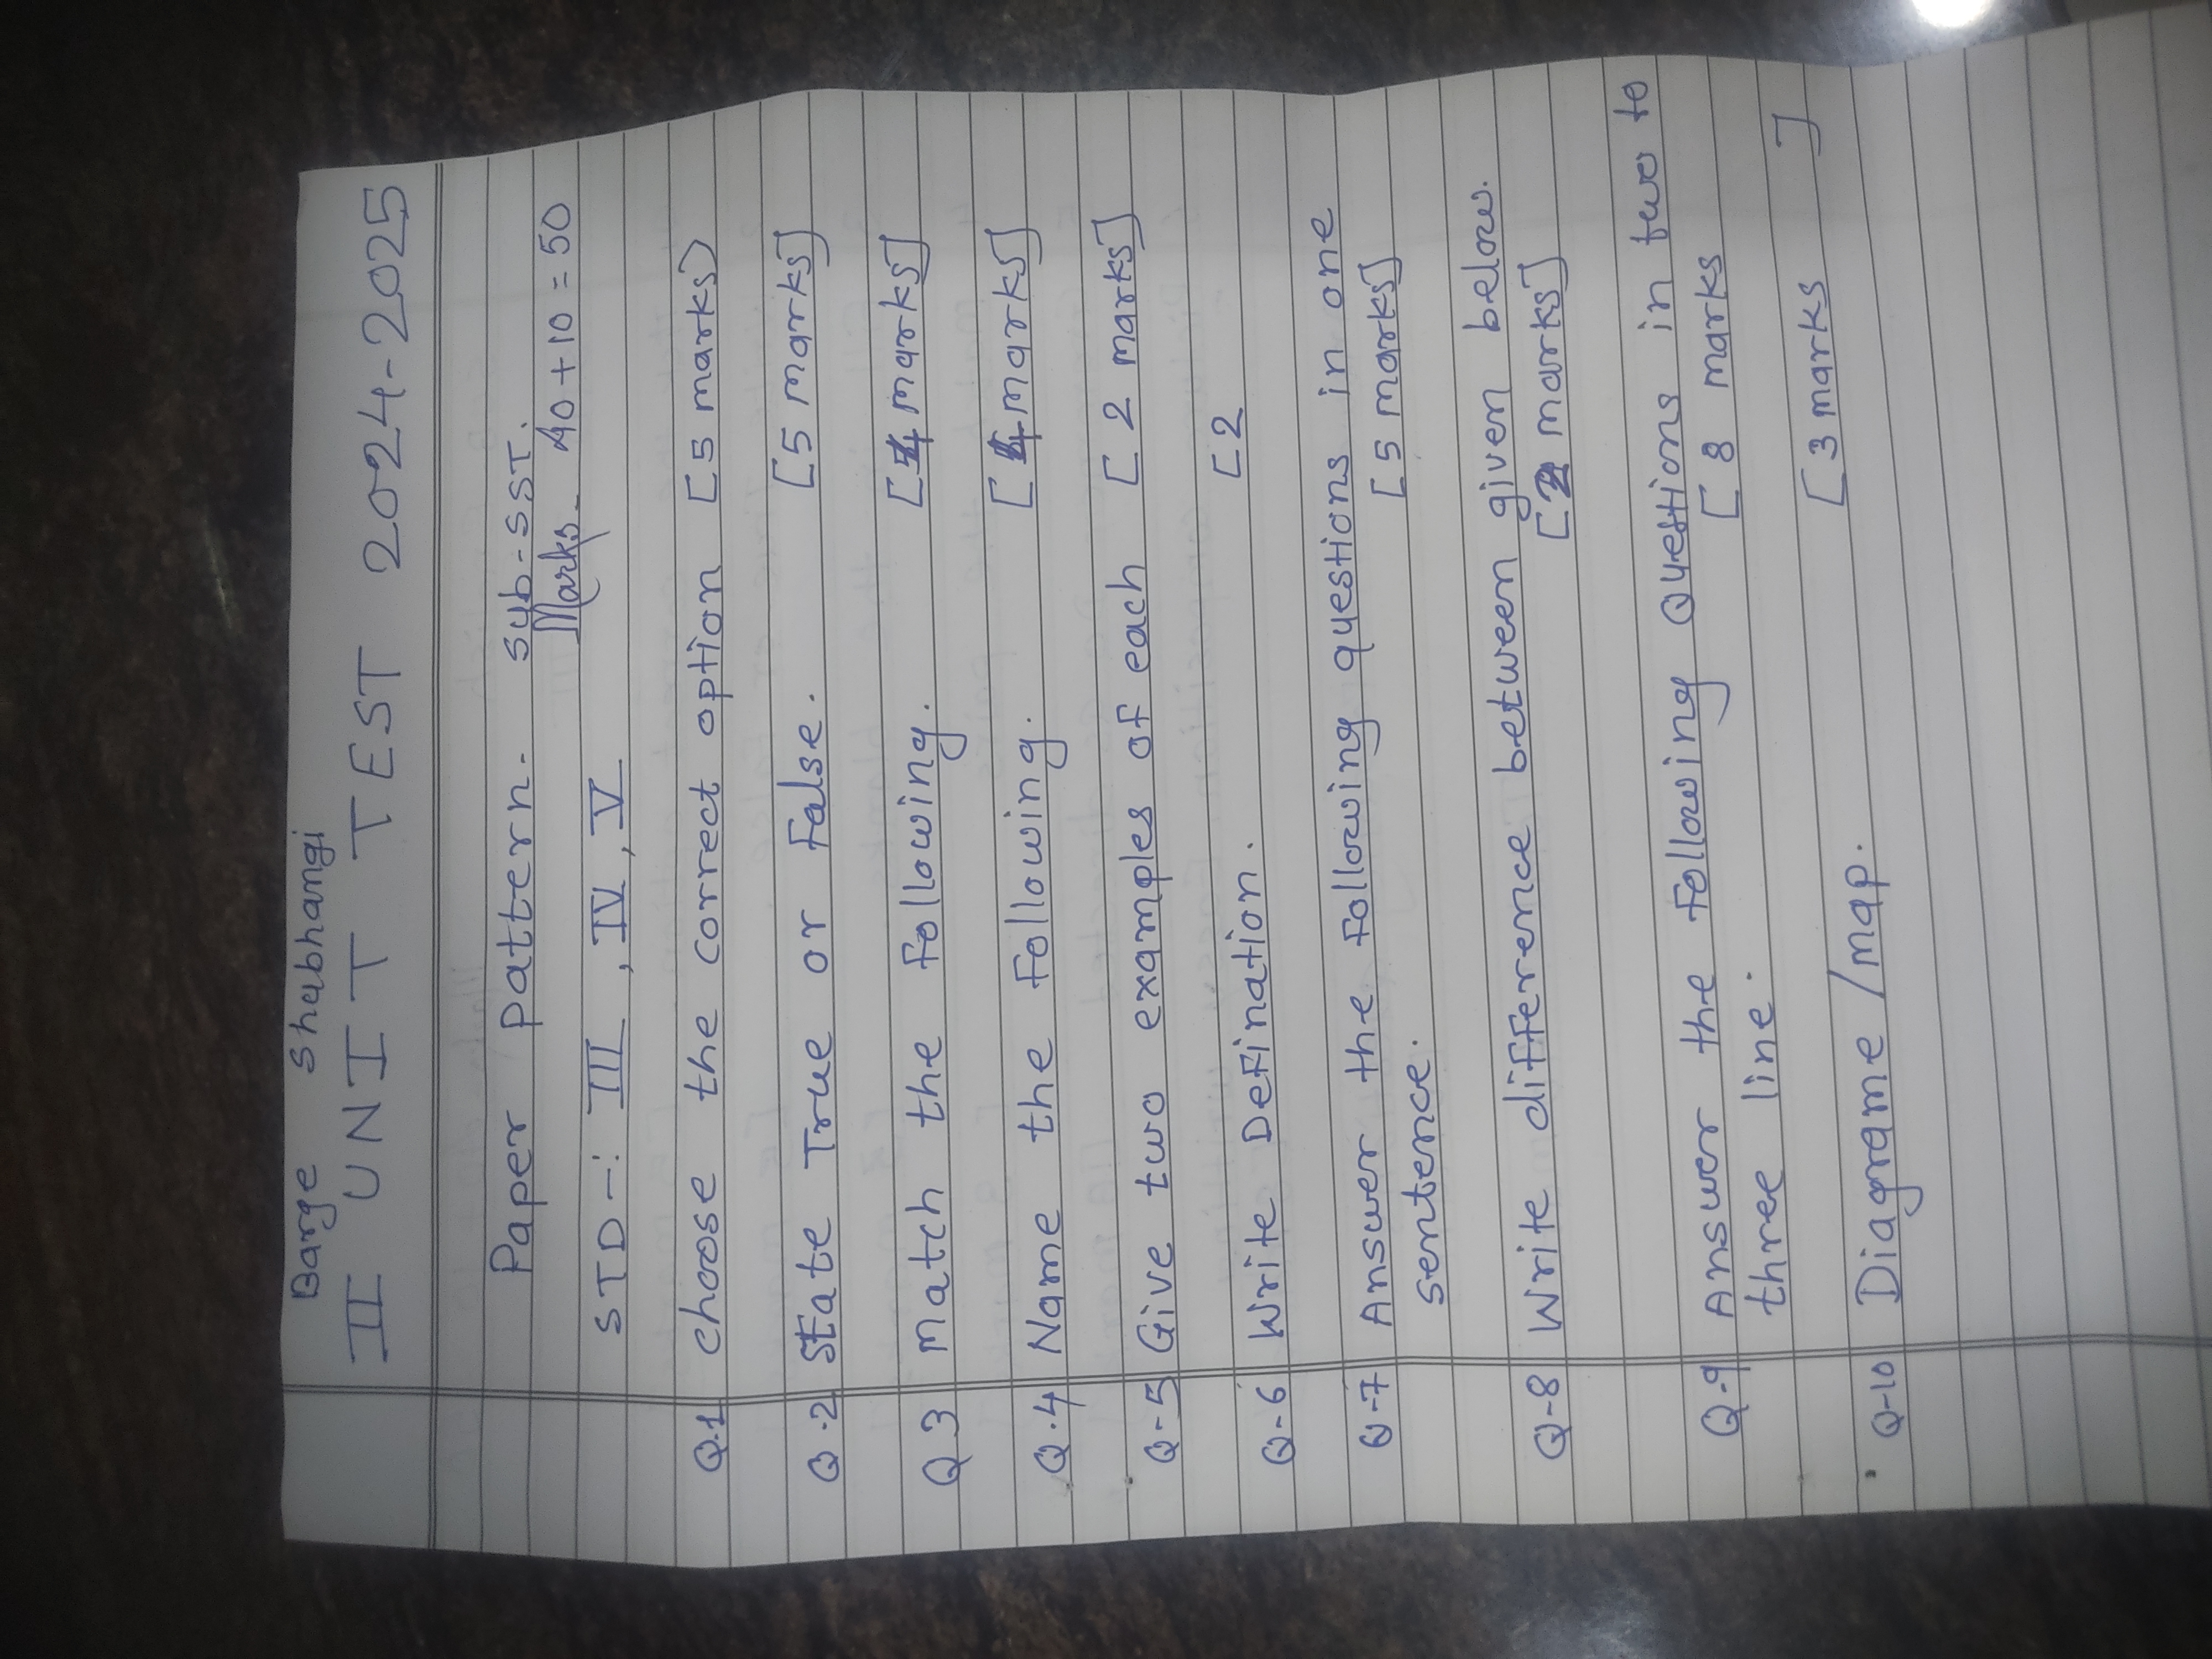 Barge Shubhangi
II UNIT TEST 2024-2025
Paper pattern. sub-SST.
Marks- 40+10=50
STD-: III, IV, V
Q.1 choose the correct option [5 marks)
Q.2 State True or False. [5 marks]
Q.3 Match the Following. [4 marks]
Q.4 Name the Following. [4 marks]
Q-5 Give two examples of each [2 marks]
Q-6 Write Defination. [2
Q-7 Answer the Following questions in one
sentence. [5 marks]
Q-8 Write difference between given below.
[2 marks]
Q.9 Answer the Following Questions in two to
three line. [8 marks
]
Q-10 Diagrame/map. [3 marks